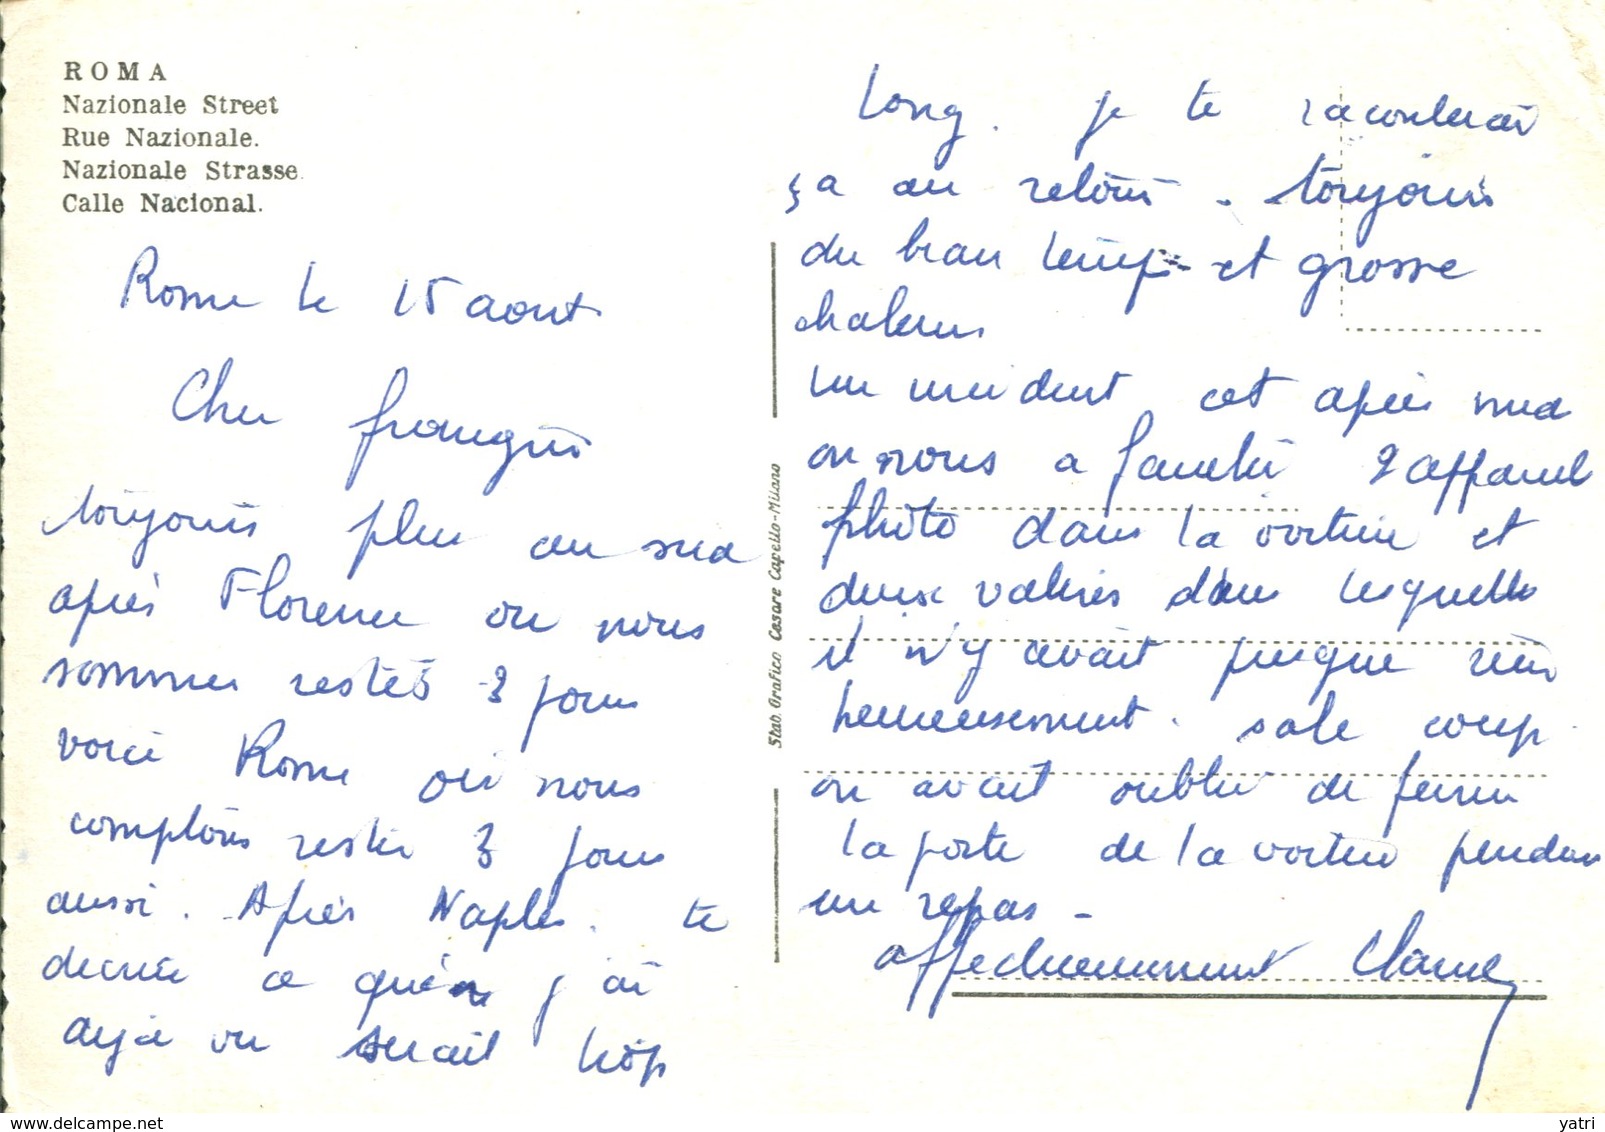 ROMA
Nazionale Street
Rue Nazionale.
Nazionale Strasse
Calle Nacional.
Rome le 15 aout
Cher
toujours plus au sud
après Florence ou nous
sommes restés 3 jours
voici Rome où nous
comptons rester 3 jours
aussi. Après Naples. te
decrire ce que j'ai
deja vu serait trop
Stab. Grafico Cesare Capello-Milano
long. je te raconterai
ça au retour. toujours
du beau temps et grosse
chaleurs
un incident cet après mid
on nous a fauché 2 appareil
photo dans la voiture et
deux valises dans lesquelles
il n'y avait presque rien
heureusement. sale coup.
on avait oublié de fermer
la porte de la voiture pendan
un repas -
affectueusement Claude
delcampe.net
yatri